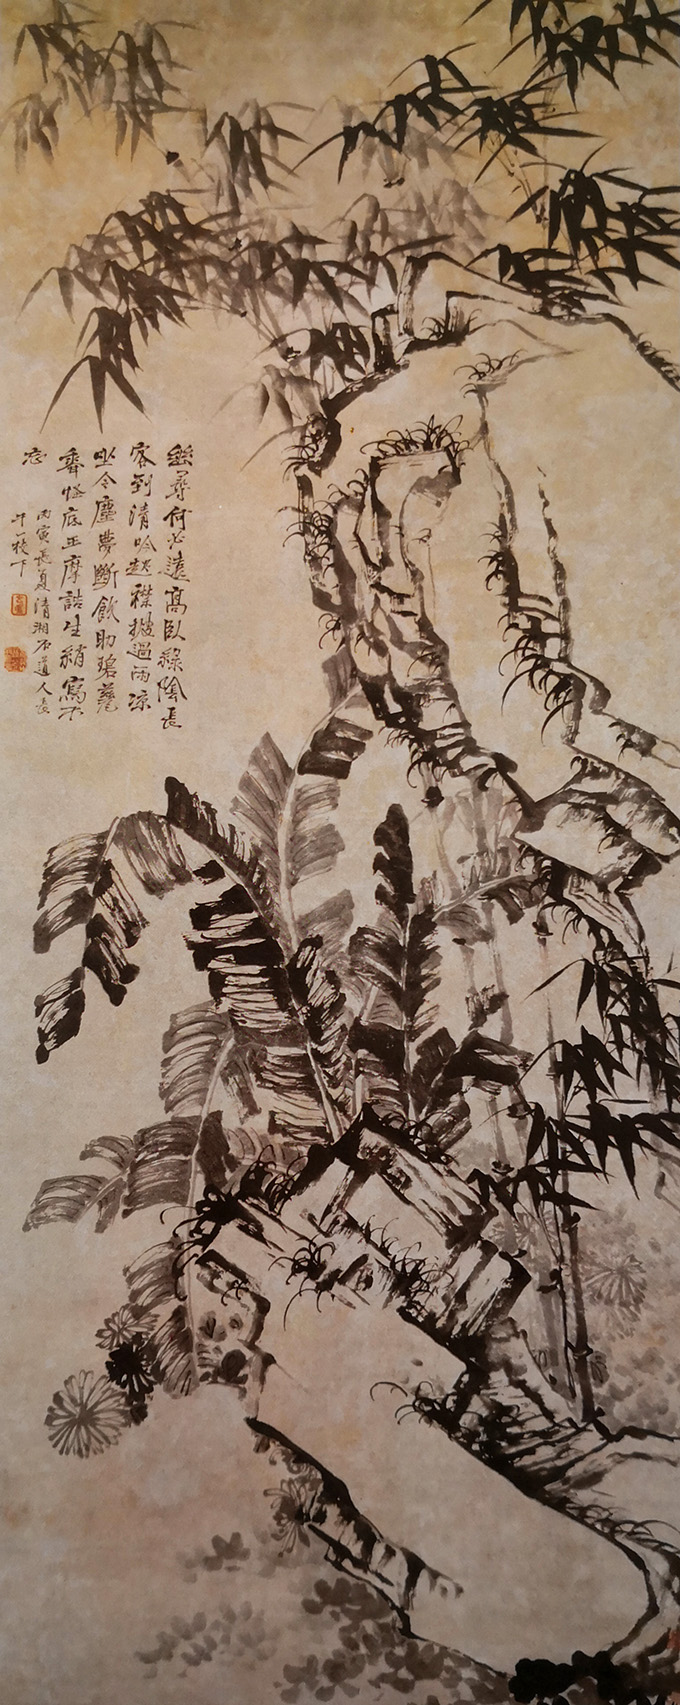 幽尋何必遠高臥綠陰長
客到清吟起襟披過雨凉
坐令塵夢斷飲助碧
怪底王摩詰生綃寫不
忘
丙寅長夏清湘石道人長
干一枝下